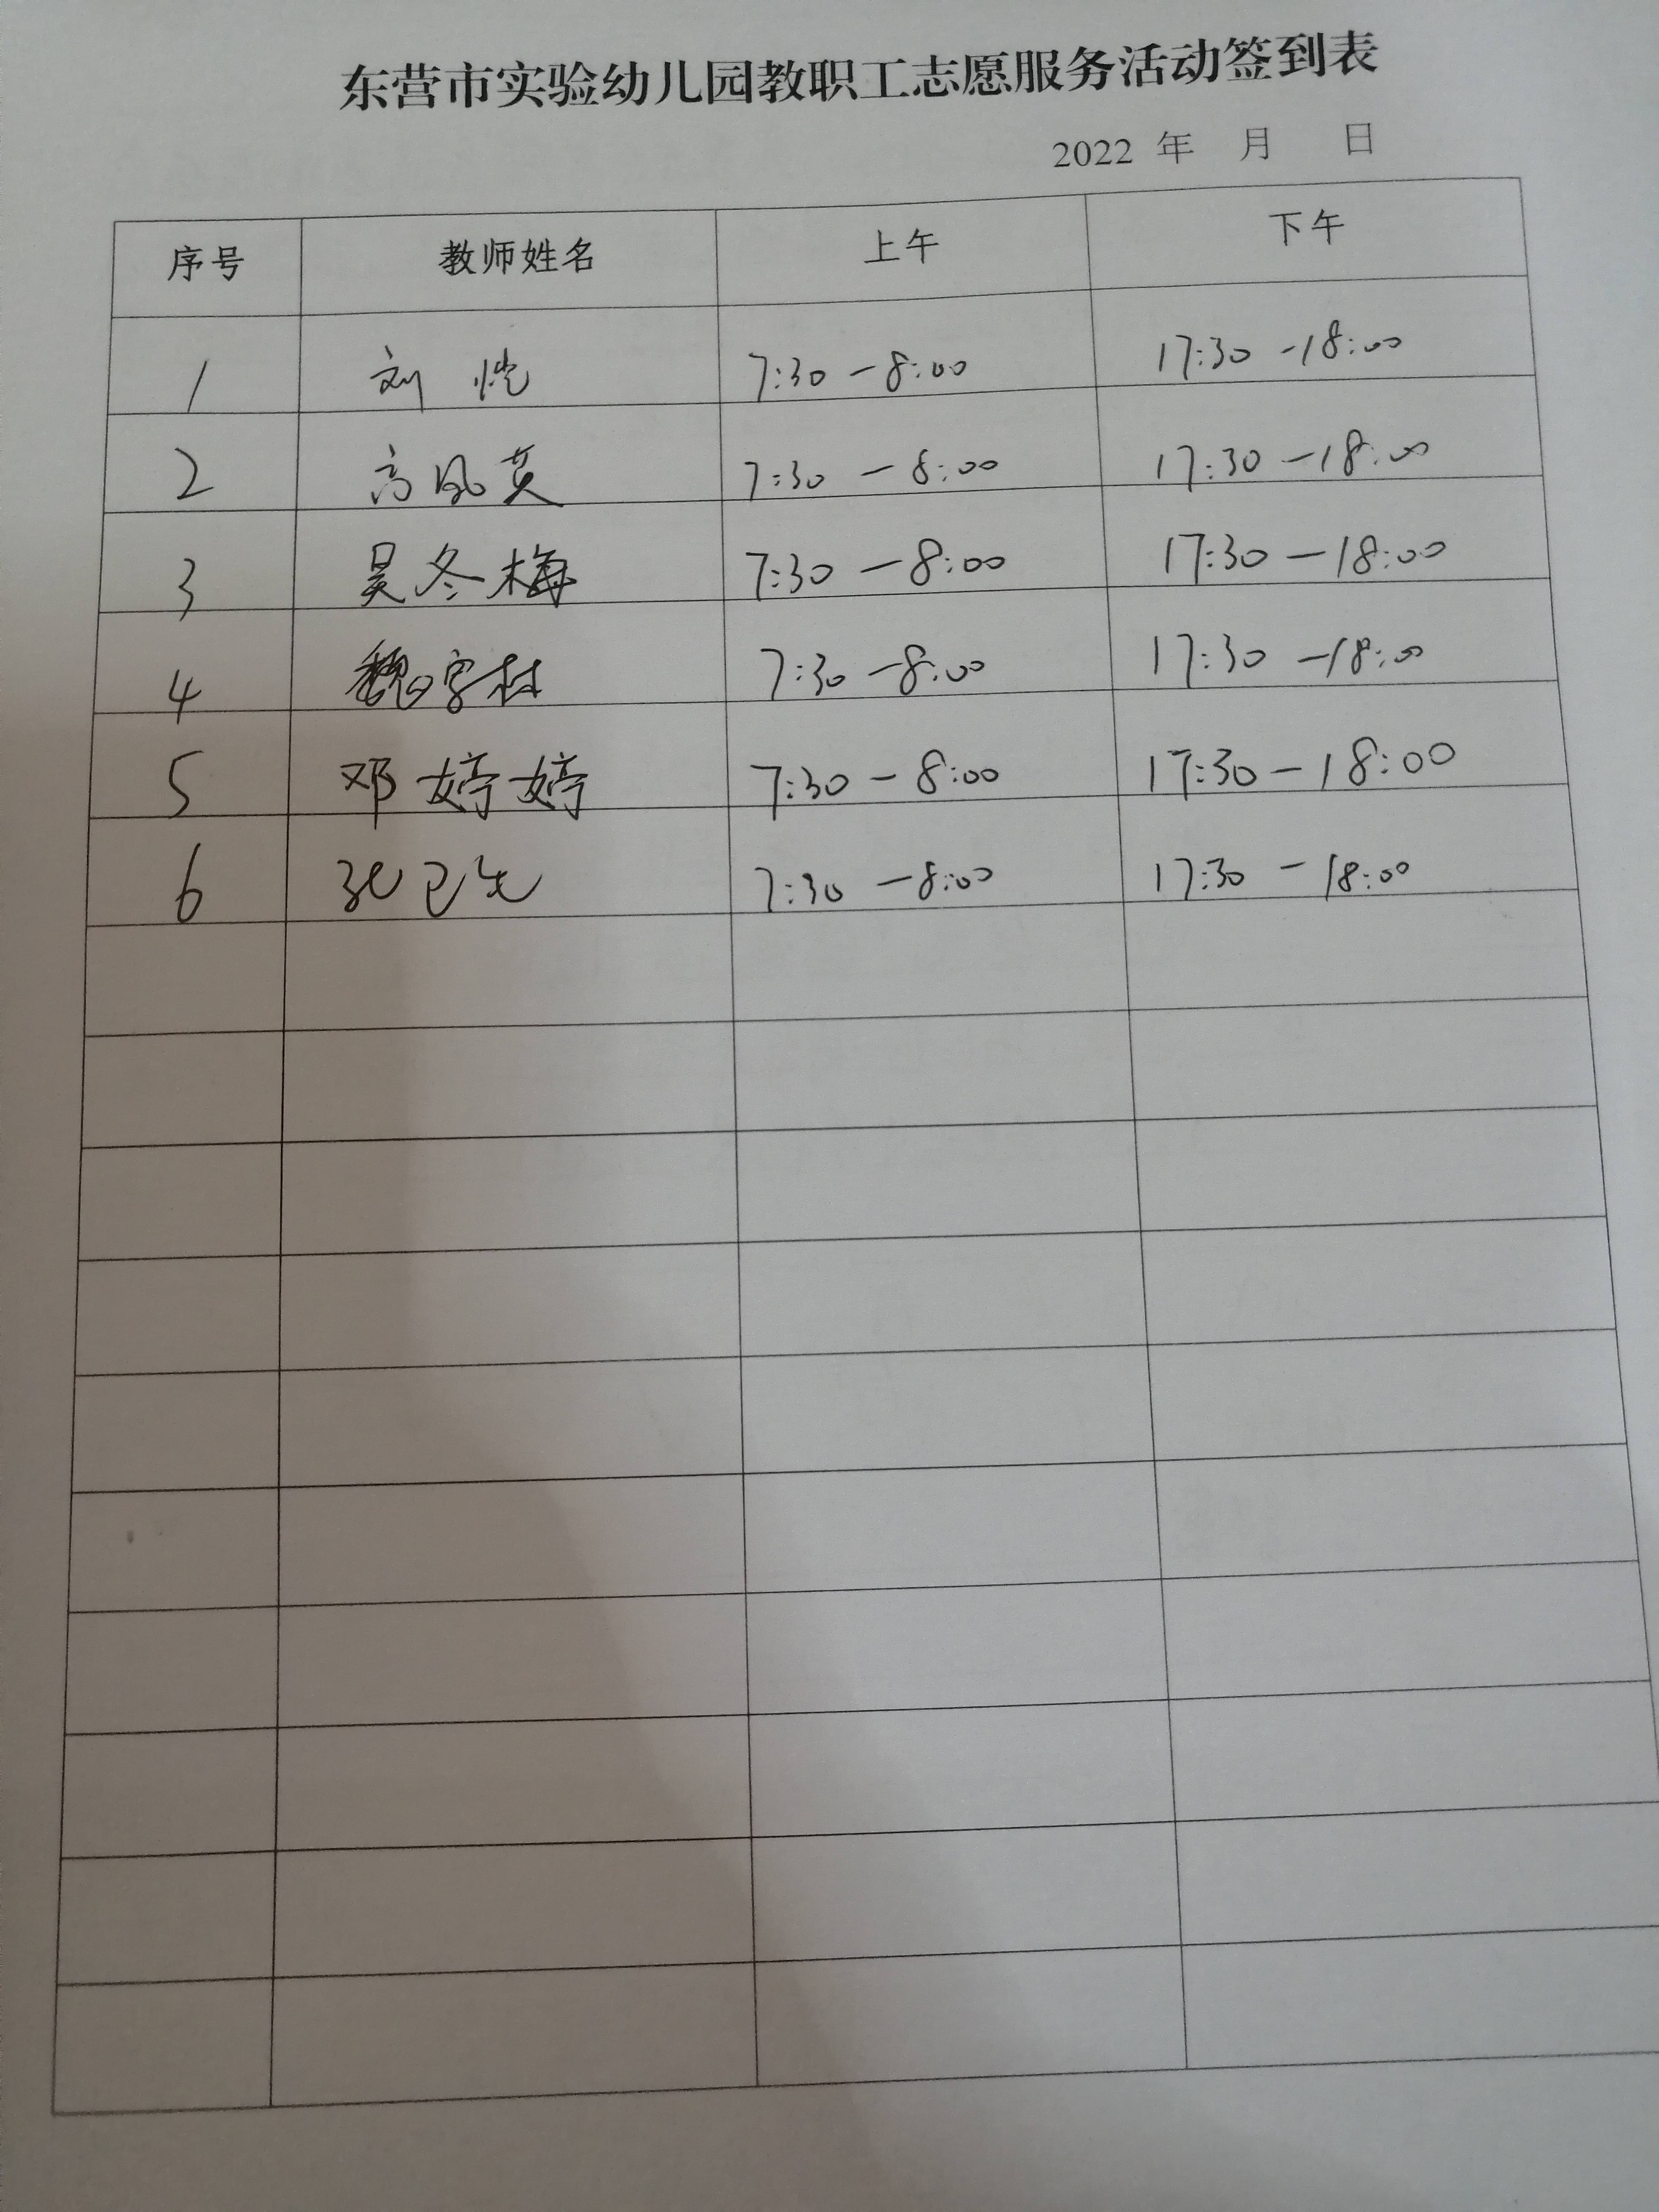 东营市实验幼儿园教职工志愿服务活动签到表
2022 年 月 日
序号 教师姓名 上午 下午
1 刘 7:30-8:00 17:30-18:00
2 高凤英 7:30-8:00 17:30-18:00
3 吴冬梅 7:30-8:00 17:30-18:00
4 魏 7:30-8:00 17:30-18:00
5 邓婷婷 7:30-8:00 17:30-18:00
6 7:30-8:00 17:30-18:00